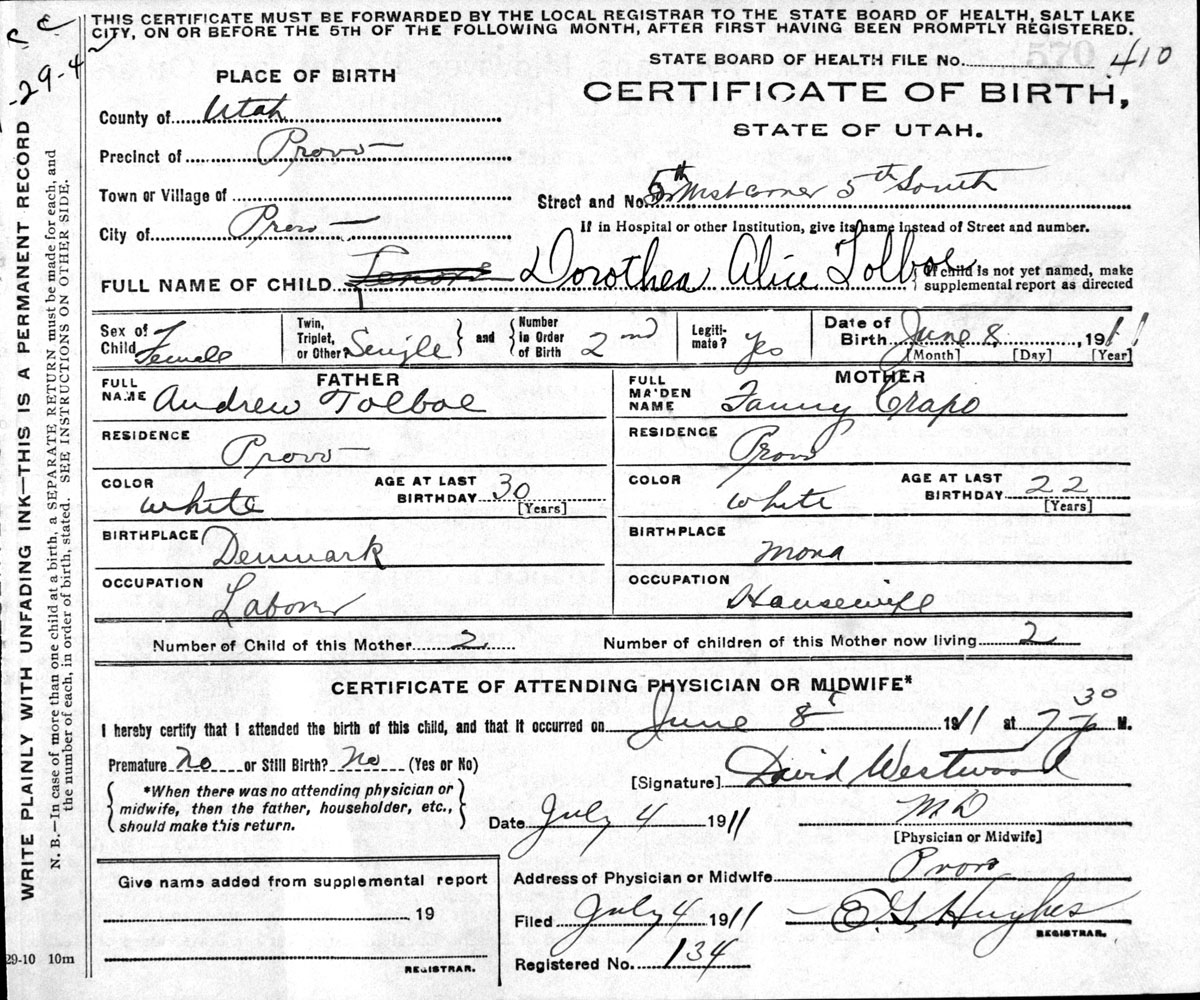 THIS CERTIFICATE MUST BE FORWARDED BY THE LOCAL REGISTRAR TO THE STATE BOARD OF HEALTH, SALT LAKE
CITY, ON OR BEFORE THE 5TH OF THE FOLLOWING MONTH, AFTER FIRST HAVING BEEN PROMPTLY REGISTERED.
-29-4
WRITE PLAINLY WITH UNFADING INK—THIS IS A PERMANENT RECORD
N. B.—In case of more than one child at a birth, a SEPARATE RETURN must be made for each, and
the number of each, in order of birth, stated. SEE INSTRUCTIONS ON OTHER SIDE.
STATE BOARD OF HEALTH FILE No. 410
CERTIFICATE OF BIRTH,
STATE OF UTAH.
PLACE OF BIRTH
County of Utah
Precinct of Provo
Town or Village of
City of Provo
Street and No. 5th West corner 5th South
If in Hospital or other Institution, give its name instead of Street and number.
FULL NAME OF CHILD Dorothea Alice Tolboe
{If child is not yet named, make
supplemental report as directed
Sex of Child Female
Twin, Triplet, or Other? Single } and { Number in Order of Birth 2nd
Legitimate? Yes
Date of Birth June 8, 1911
[Month] [Day] [Year]
FATHER
FULL NAME Andrew Tolboe
RESIDENCE Provo
COLOR White
AGE AT LAST BIRTHDAY 30
[Years]
BIRTHPLACE Denmark
OCCUPATION Laborer
MOTHER
FULL MAIDEN NAME Fanny Crapo
RESIDENCE Provo
COLOR White
AGE AT LAST BIRTHDAY 22
[Years]
BIRTHPLACE Mona
OCCUPATION Housewife
Number of Child of this Mother 2 Number of children of this Mother now living 2
CERTIFICATE OF ATTENDING PHYSICIAN OR MIDWIFE*
I hereby certify that I attended the birth of this child, and that it occurred on June 8 1911 at 7 30 P M.
Premature No or Still Birth? No (Yes or No)
[Signature] David Westwood
{ *When there was no attending physician or
midwife, then the father, householder, etc.,
should make this return. }
Date July 4 1911 M D
[Physician or Midwife]
Address of Physician or Midwife Provo
Give name added from supplemental report
19
REGISTRAR.
Filed July 4 1911 E G Hughes
REGISTRAR.
Registered No. 134
29-10 10m